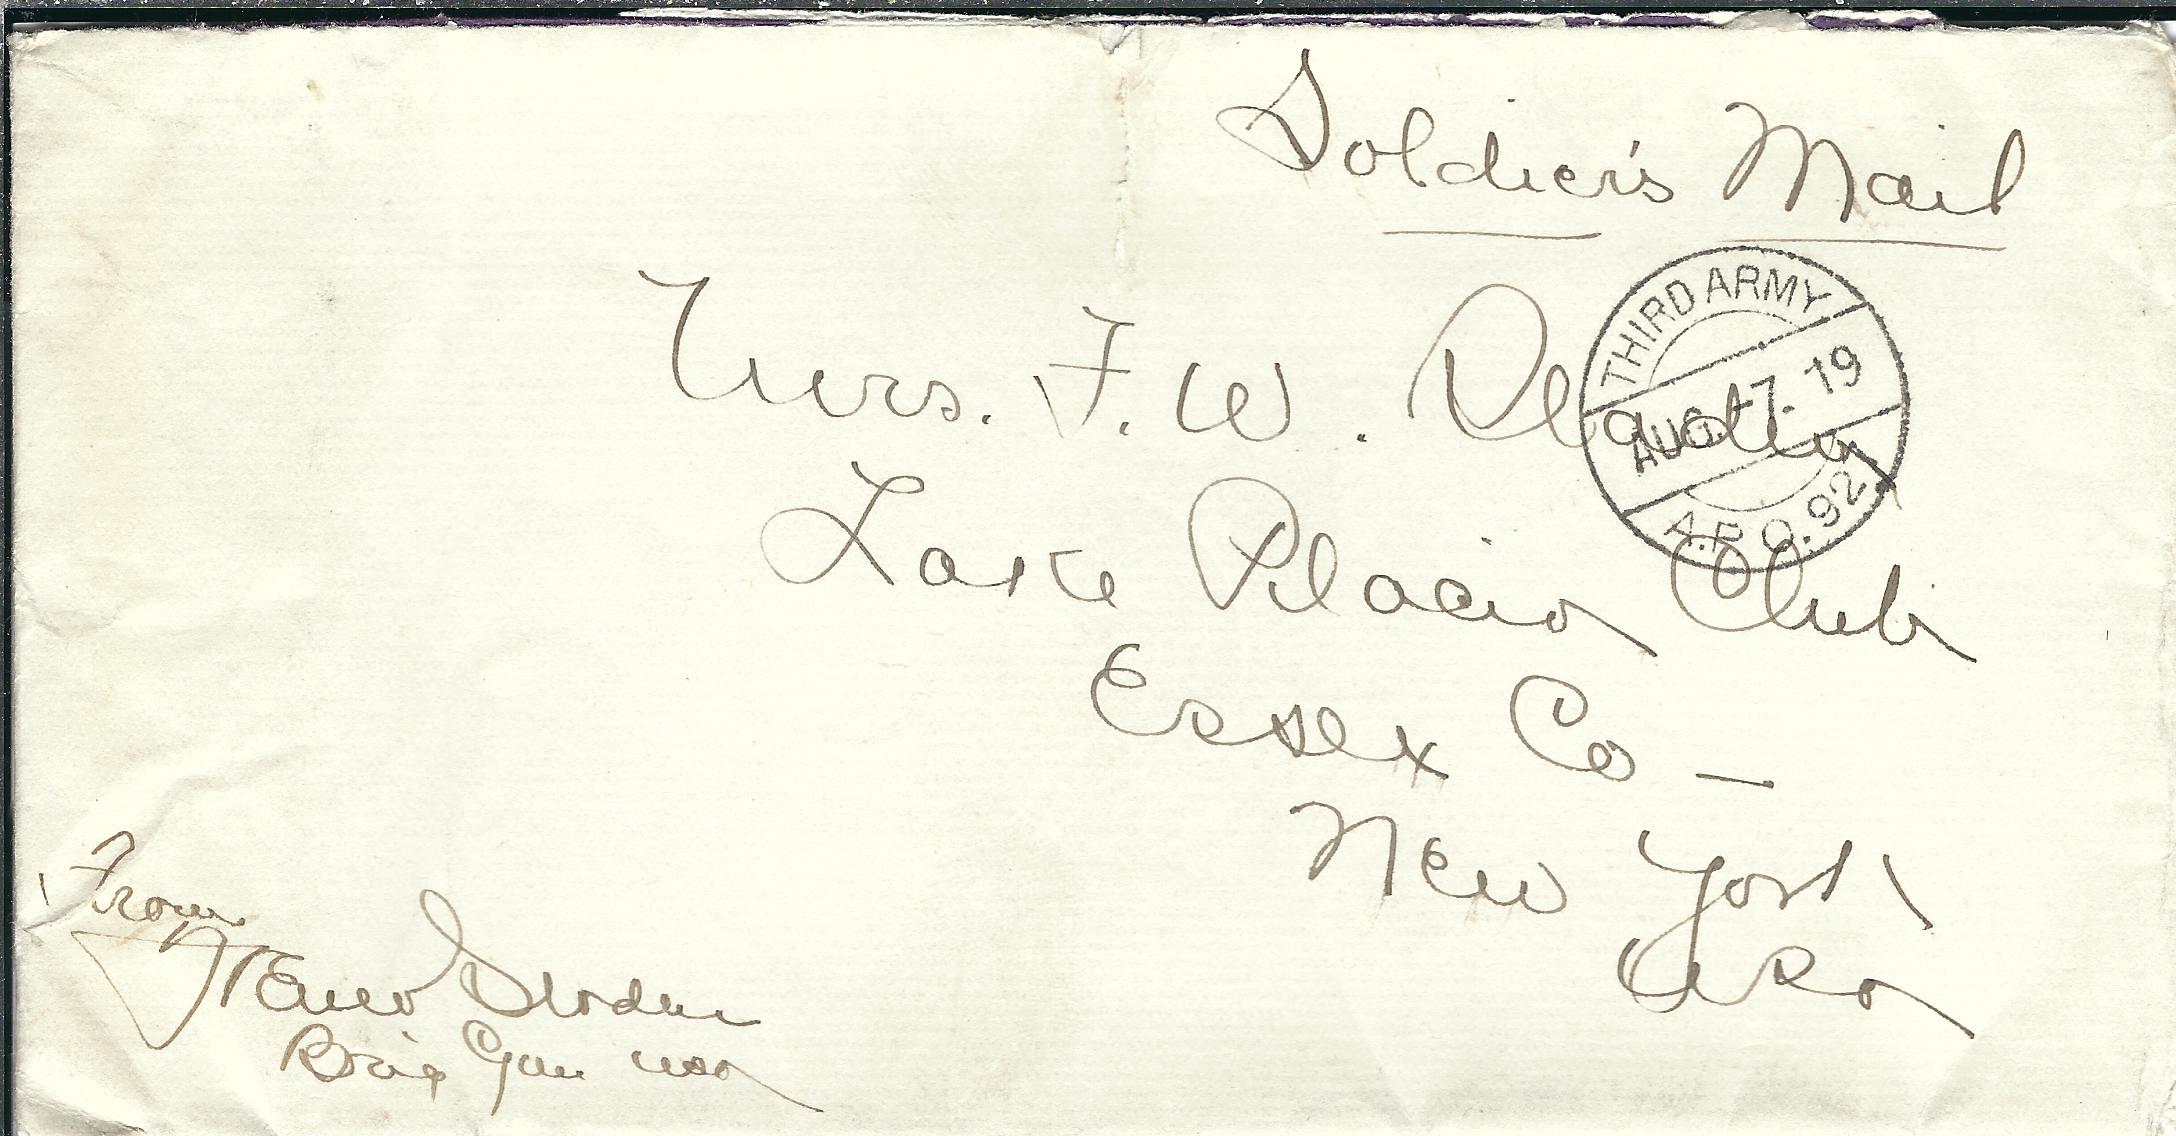 Soldier's Mail
THIRD ARMY
AUG. -7. 19
A.P.O. 927
Mrs. F. W.
Lake Placid Club
Essex Co —
New York
USA
From
Brig Gen USA